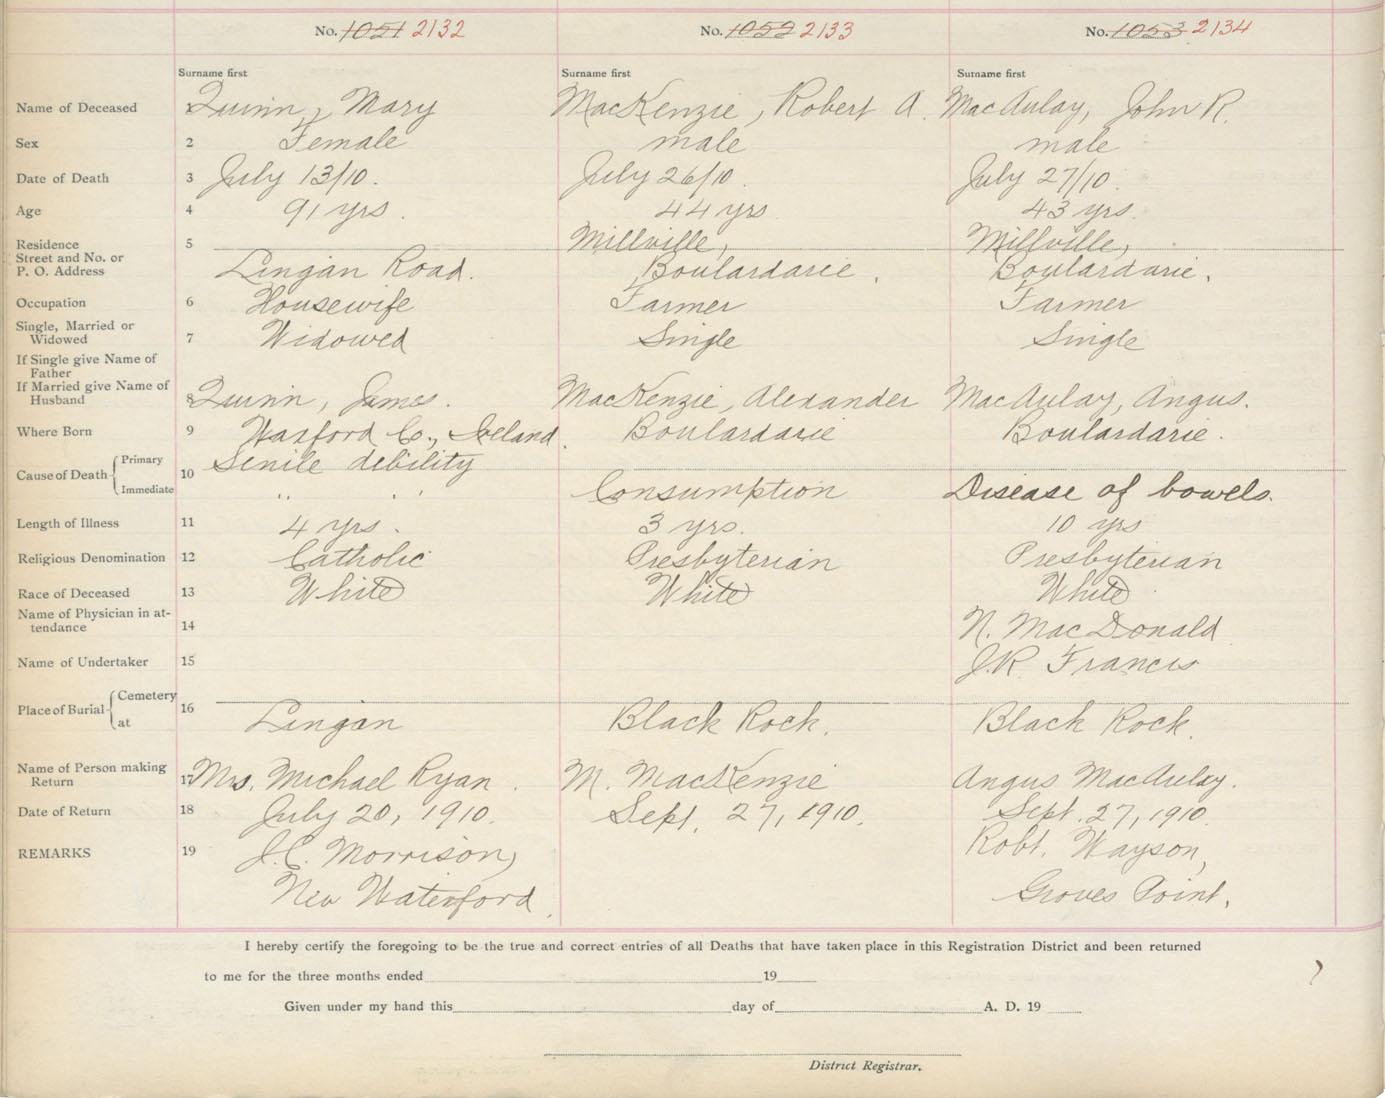 No. 1051 2132 No. 1052 2133 No. 1053 2134
Surname first Surname first Surname first
Name of Deceased 1 Quinn, Mary MacKenzie, Robert A. MacAulay, John R.
Sex 2 Female male male
Date of Death 3 July 13/10. July 26/10. July 27/10
Age 4 91 yrs. 44 yrs 43 yrs.
Residence 5 Millville, Millville,
Street and No. or
P. O. Address Lingan Road. Boulardarie. Boulardarie.
Occupation 6 Housewife Farmer Farmer
Single, Married or
Widowed 7 Widowed Single Single
If Single give Name of
Father
If Married give Name of
Husband 8 Quinn, James. MacKenzie, Alexander MacAulay, Angus.
Where Born 9 Waxford Co., Ireland. Boulardarie Boulardarie.
Cause of Death Primary 10 Senile debility
Immediate " " Consumption Disease of bowels.
Length of Illness 11 4 yrs. 3 yrs. 10 yrs
Religious Denomination 12 Catholic Presbyterian Presbyterian
Race of Deceased 13 White White White
Name of Physician in at-
tendance 14 N. MacDonald
Name of Undertaker 15 J.R. Francis
Place of Burial Cemetery 16
at Lingan Black Rock. Black Rock.
Name of Person making
Return 17 Mrs. Michael Ryan. M. MacKenzie Angus MacAulay.
Date of Return 18 July 20, 1910. Sept. 27, 1910. Sept. 27, 1910.
REMARKS 19 J.C. Morrison, Robt. Wayson,
New Waterford. Groves Point.
I hereby certify the foregoing to be the true and correct entries of all Deaths that have taken place in this Registration District and been returned
to me for the three months ended 19
Given under my hand this day of A. D. 19
District Registrar.